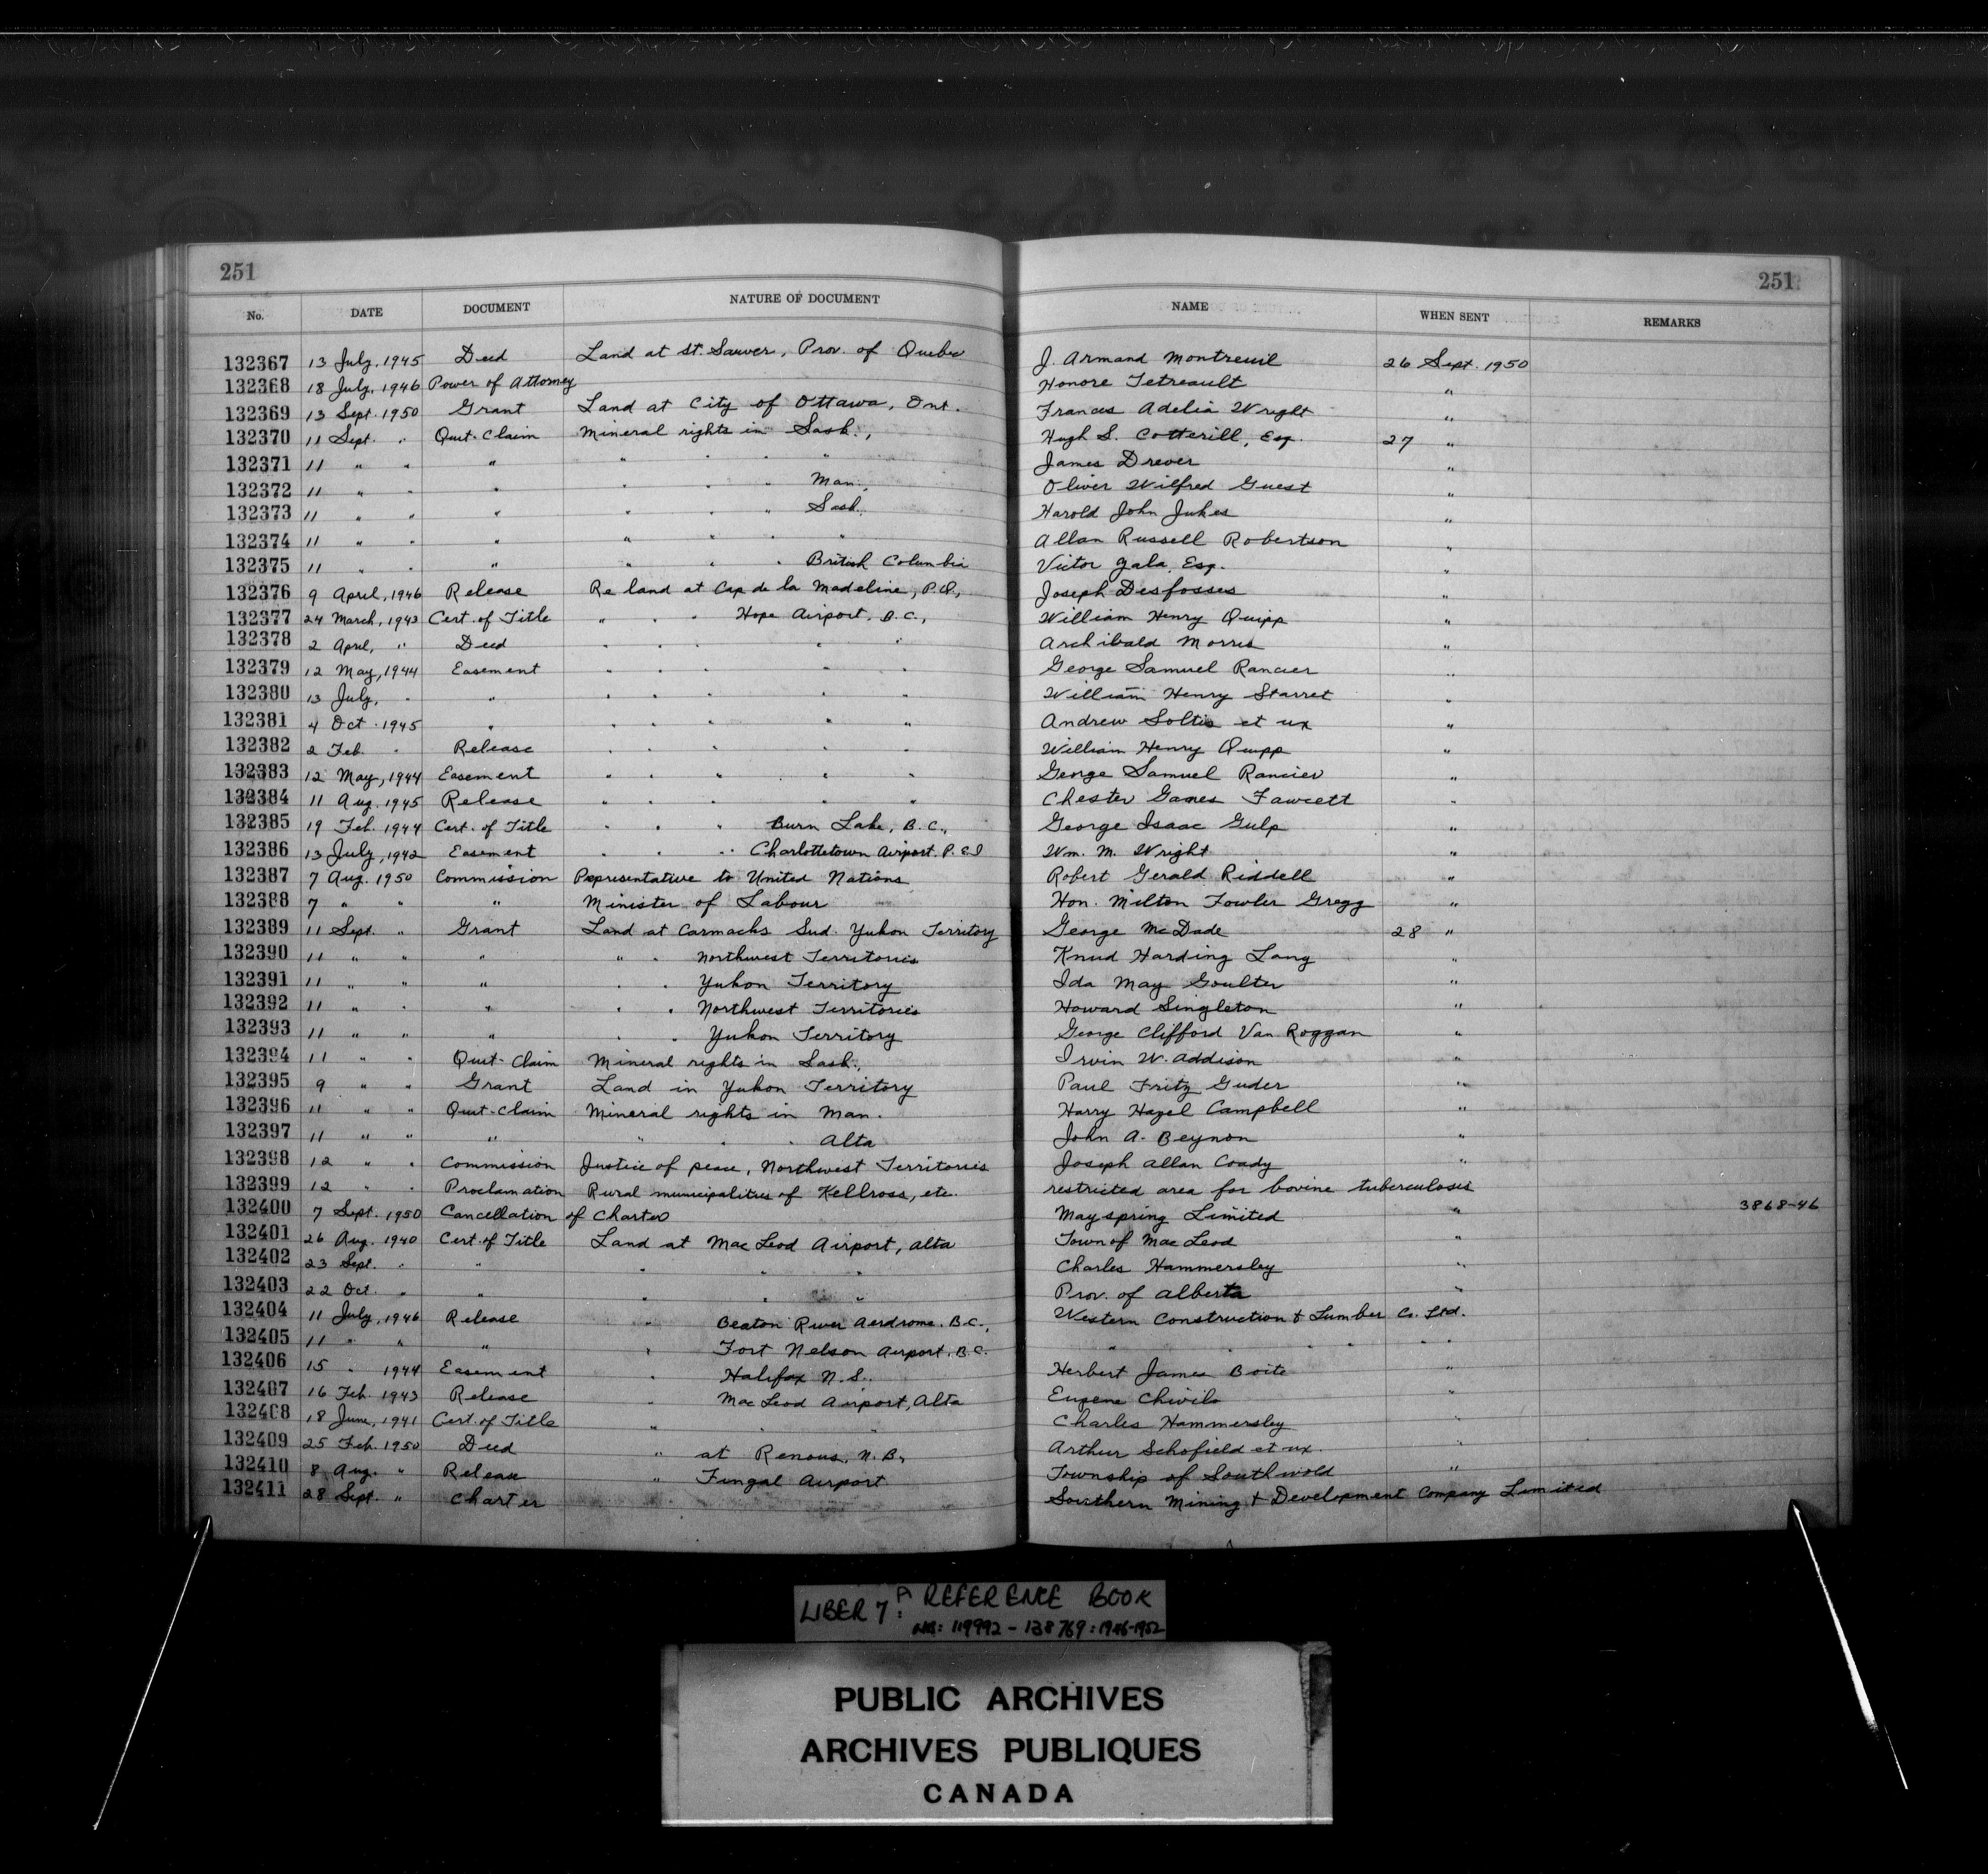 251 251
No. DATE DOCUMENT NATURE OF DOCUMENT NAME WHEN SENT REMARKS
132367 13 July, 1945 Deed Land at St. Sauver, Prov. of Quebec J. Armand Montreuil 26 Sept. 1950
132368 18 July, 1946 Power of Attorney Honore Tetreault "
132369 13 Sept. 1950 Grant Land at City of Ottawa, Ont. Frances Adelia Wright "
132370 11 Sept. " Quit-Claim Mineral rights in Sask., Hugh S. Cotterill, Esq. 27 "
132371 11 " " " " " " " James Drever "
132372 11 " " " " " " Man., Oliver Wilfred Guest "
132373 11 " " " " " " Sask. Harold John Jukes "
132374 11 " " " " " " " Allan Russell Robertson "
132375 11 " " " " " " British Columbia Victor Gala, Esq. "
132376 9 April, 1946 Release Re land at Cap de la Madeline, P.Q., Joseph Desfosses "
132377 24 March, 1943 Cert. of Title " " " Hope Airport, B.C., William Henry Quipp "
132378 2 April, " Deed " " " " " Archibald Morris "
132379 12 May, 1944 Easement " " " " " George Samuel Rancier "
132380 13 July, " " " " " " " William Henry Starret "
132381 4 Oct. 1945 " " " " " " Andrew Soltis et ux "
132382 2 Feb. " Release " " " " " William Henry Quipp "
132383 12 May, 1944 Easement " " " " " George Samuel Rancier "
132384 11 Aug. 1945 Release " " " " " Chester Ganes Fawcett "
132385 19 Feb. 1944 Cert. of Title " " " Burn Lake, B.C., George Isaac Gulp "
132386 13 July, 1942 Easement " " " Charlottetown Airport, P.E.I Wm. M. Wright "
132387 7 Aug. 1950 Commission Representative to United Nations Robert Gerald Riddell "
132388 7 " " " Minister of Labour Hon. Milton Fowler Gregg "
132389 11 Sept. " Grant Land at Carmacks Sud. Yukon Territory George McDade 28 "
132390 11 " " " " " Northwest Territories Knud Harding Lang "
132391 11 " " " " " Yukon Territory Ida May Goulter "
132392 11 " " " " " Northwest Territories Howard Singleton "
132393 11 " " " " " Yukon Territory George Clifford Van Roggan "
132394 11 " " Quit-Claim Mineral rights in Sask., Irvin W. Addison "
132395 9 " " Grant Land in Yukon Territory Paul Fritz Guder "
132396 11 " " Quit-Claim Mineral rights in Man. Harry Hazel Campbell "
132397 11 " " " " " " Alta John A. Beynon "
132398 12 " " Commission Justice of peace, Northwest Territories Joseph Allan Coady "
132399 12 " " Proclamation Rural municipalities of Kellross, etc. restricted area for bovine tuberculosis
132400 7 Sept. 1950 Cancellation of Charter Mayspring Limited " 3868-46
132401 26 Aug. 1940 Cert. of Title Land at MacLeod Airport, Alta Town of MacLeod "
132402 23 Sept. " " " " " Charles Hammersley "
132403 22 Oct. " " " " " Prov. of Alberta "
132404 11 July, 1946 Release " Beaton River Aerdrome, B.C., Western Construction & Lumber Co. Ltd.
132405 11 " " " " Fort Nelson Airport, B.C. " " " " "
132406 15 " 1944 Easement " Halifax N.S., Herbert James Boite "
132407 16 Feb. 1943 Release " MacLeod Airport, Alta Eugene Chivilo "
132408 18 June, 1941 Cert. of Title " " " Charles Hammersley "
132409 25 Feb. 1950 Deed " at Renous, N.B., Arthur Schofield et ux. "
132410 8 Aug. " Release " Fingal Airport Township of Southwold "
132411 28 Sept. " Charter Southern Mining & Development Company Limited
LIBER 7: A REFERENCE BOOK
NOS: 119992 - 138769: 1946-1952
PUBLIC ARCHIVES
ARCHIVES PUBLIQUES
CANADA